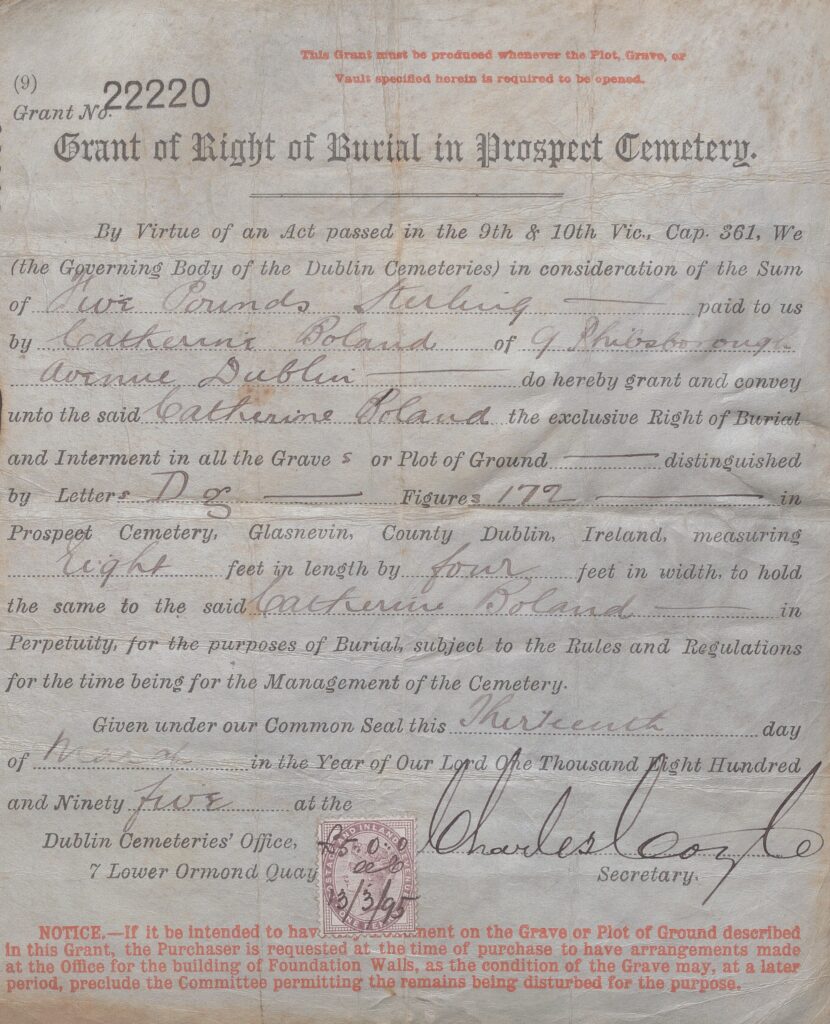 This Grant must be produced whenever the Plot, Grave, or
Vault specified herein is required to be opened.
(9)
Grant No. 22220
Grant of Right of Burial in Prospect Cemetery.
By Virtue of an Act passed in the 9th & 10th Vic., Cap. 361, We
(the Governing Body of the Dublin Cemeteries) in consideration of the Sum
of Five Pounds Sterling paid to us
by Catherine Boland of 9 Phibsborough
Avenue Dublin do hereby grant and convey
unto the said Catherine Boland the exclusive Right of Burial
and Interment in all the Grave s or Plot of Ground distinguished
by Letters D g Figures 172 in
Prospect Cemetery, Glasnevin, County Dublin, Ireland, measuring
Eight feet in length by four feet in width, to hold
the same to the said Catherine Boland in
Perpetuity, for the purposes of Burial, subject to the Rules and Regulations
for the time being for the Management of the Cemetery.
Given under our Common Seal this Thirteenth day
of March in the Year of Our Lord One Thousand Eight Hundred
and Ninety five at the
Dublin Cemeteries' Office,
7 Lower Ormond Quay
£5.0.0
3/3/95
Charles Coyle
Secretary.
NOTICE.—If it be intended to have on the Grave or Plot of Ground described
in this Grant, the Purchaser is requested at the time of purchase to have arrangements made
at the Office for the building of Foundation Walls, as the condition of the Grave may, at a later
period, preclude the Committee permitting the remains being disturbed for the purpose.